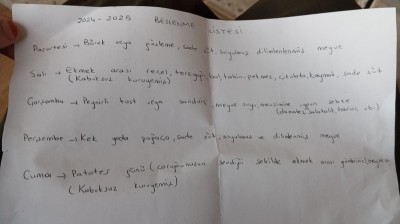 2024 - 2025 BESLENME LİSTESİ
Pazartesi → Börek veya gözleme, sade süt, soyulmuş dilimlenmiş meyve
Salı → Ekmek arası reçel, tereyağı, bal, tahin-pekmez, çikolata, kaymak, sade süt
(Kabuksuz kuruyemiş)
Çarşamba → Peynirli tost veya sandviç, meyve suyu, mevsimine uygun sebze
(domates, salatalık, havuç vb.)
Perşembe → Kek yada poğaça, sade süt, soyulmuş dilimlenmiş meyve
Cuma → Patates günü (çocuğumuzun sevdiği şekilde ekmek arası
(Kabuksuz kuruyemiş)